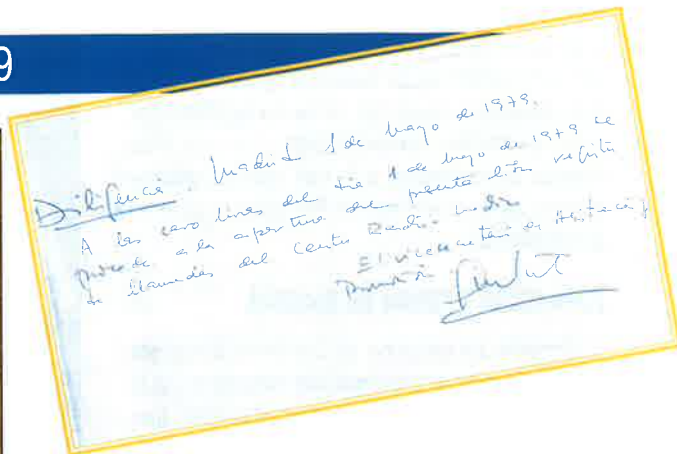 9
Diligencia. Madrid 1 de Mayo de 1979.
A las cero horas del día 1 de Mayo de 1979 se
procede a la apertura del presente libro registro
de llamadas del Centro Radio-Medico
El vicesecretario de Asistencia y
Promoción